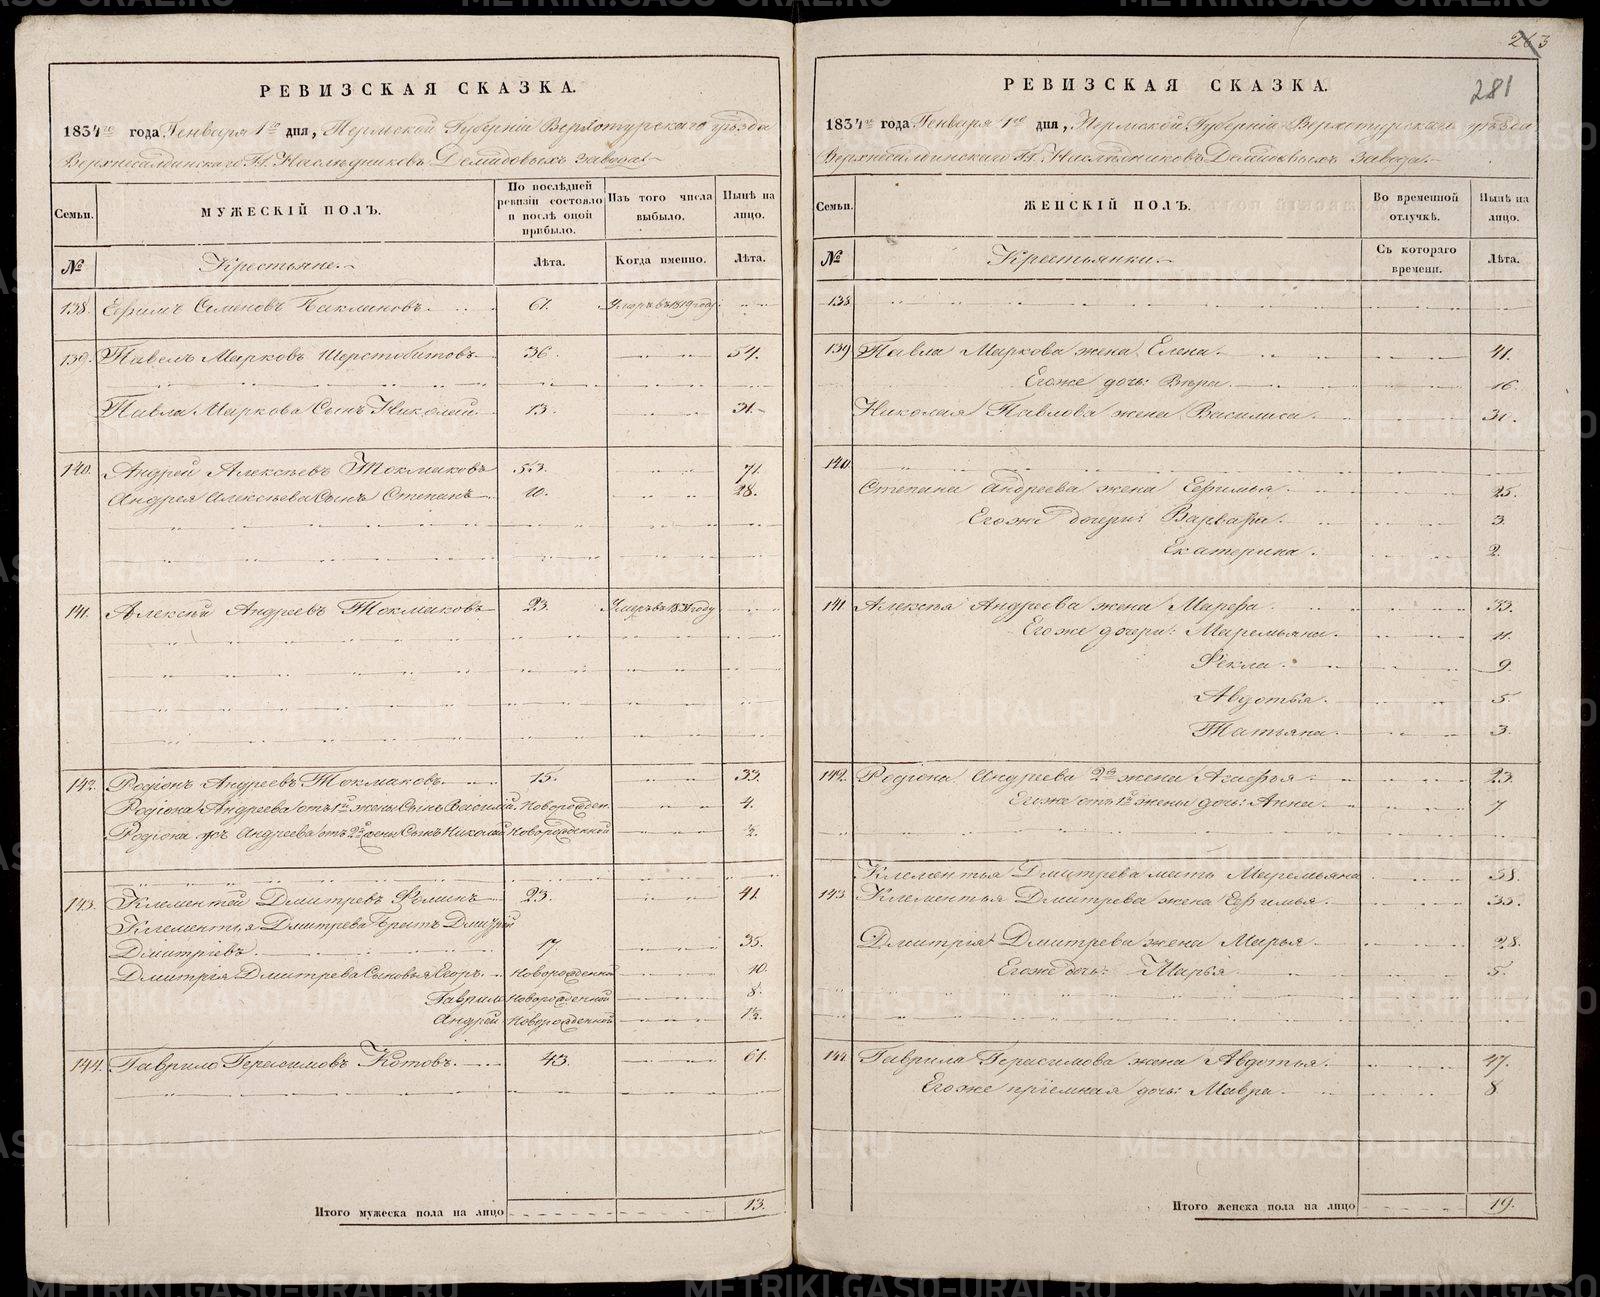 263
281
РЕВИЗСКАЯ СКАЗКА.
1834го года Генваря 1го дня, Пермской Губерніи Верхотурскаго уѣзда
Верхнесалдинскаго Гг. Наслѣдниковъ Демидовыхъ завода.
Семьи.
МУЖЕСКІЙ ПОЛЪ.
По послѣдней ревизіи состояло и послѣ оной прибыло.
Изъ того числа выбыло.
Нынѣ на лицо.
№
Крестьяне.
Лѣта.
Когда именно.
Лѣта.
138. Ефимъ Семеновъ Баклановъ. 61. Умеръ въ 1819 году
139. Павелъ Марковъ Шерстобитовъ 36. 54.
Павла Маркова Сынъ Николай 13. 31.
140. Андрей Алексѣевъ Токмаковъ 53. 71.
Андрея Алексѣева Сынъ Степанъ 10. 28.
141. Алексѣй Андреевъ Токмаковъ 23. Умеръ въ 1831 году
142. Родіонъ Андреевъ Токмаковъ. 15. 33.
Родіона Андреева отъ 1й жены Сынъ Василій Новорожден. 4.
Родіона Андреева отъ 2й жены Сынъ Николай Новорожденной ½.
143. Клементей Дмитревъ Фоминъ 23. 41.
Клементья Дмитрева Братъ Дмитрей
Дмитріевъ. 17 35.
Дмитрія Дмитрева Сыновья Егоръ Новорожденной 10.
Гаврило Новорожденной 8.
Андрей Новорожденной 1½.
144. Гаврило Герасимовъ Котовъ. 43. 61.
Итого мужеска пола на лицо 13.
РЕВИЗСКАЯ СКАЗКА.
1834го года Генваря 1го дня, Пермской Губерніи Верхотурскаго уѣзда
Верхнесалдинскаго Гг. Наслѣдниковъ Демидовыхъ завода.
Семьи.
ЖЕНСКІЙ ПОЛЪ.
Во временной отлучкѣ.
Нынѣ на лицо.
№
Крестьянки.
Съ котораго времени.
Лѣта.
138
139 Павла Маркова жена Елена 41.
Егоже дочь: Вѣра 16
Николая Павлова жена Василиса 31.
140.
Степана Андреева жена Ефимья 25.
Егоже дочери: Варвара 3.
Екатерина. 2.
141 Алексѣя Андреева жена Марфа 33.
Егоже дочери: Маремьяна. 11.
Фекла. 9.
Авдотья. 5.
Татьяна. 3.
142. Родіона Андреева 2я жена Агафья. 23.
Егоже отъ 1й жены дочь: Анна. 7
Клементья Дмитрева мать Маремьяна 58.
143 Клементья Дмитрева жена Ефимья. 35.
Дмитрія Дмитрева жена Марья 28.
Егоже дочь: Марья 5.
144 Гаврила Герасимова жена Авдотья. 47.
Егоже пріемная дочь: Мавра 8
Итого женска пола на лицо 19.
METRIKI.GASO-URAL.RU